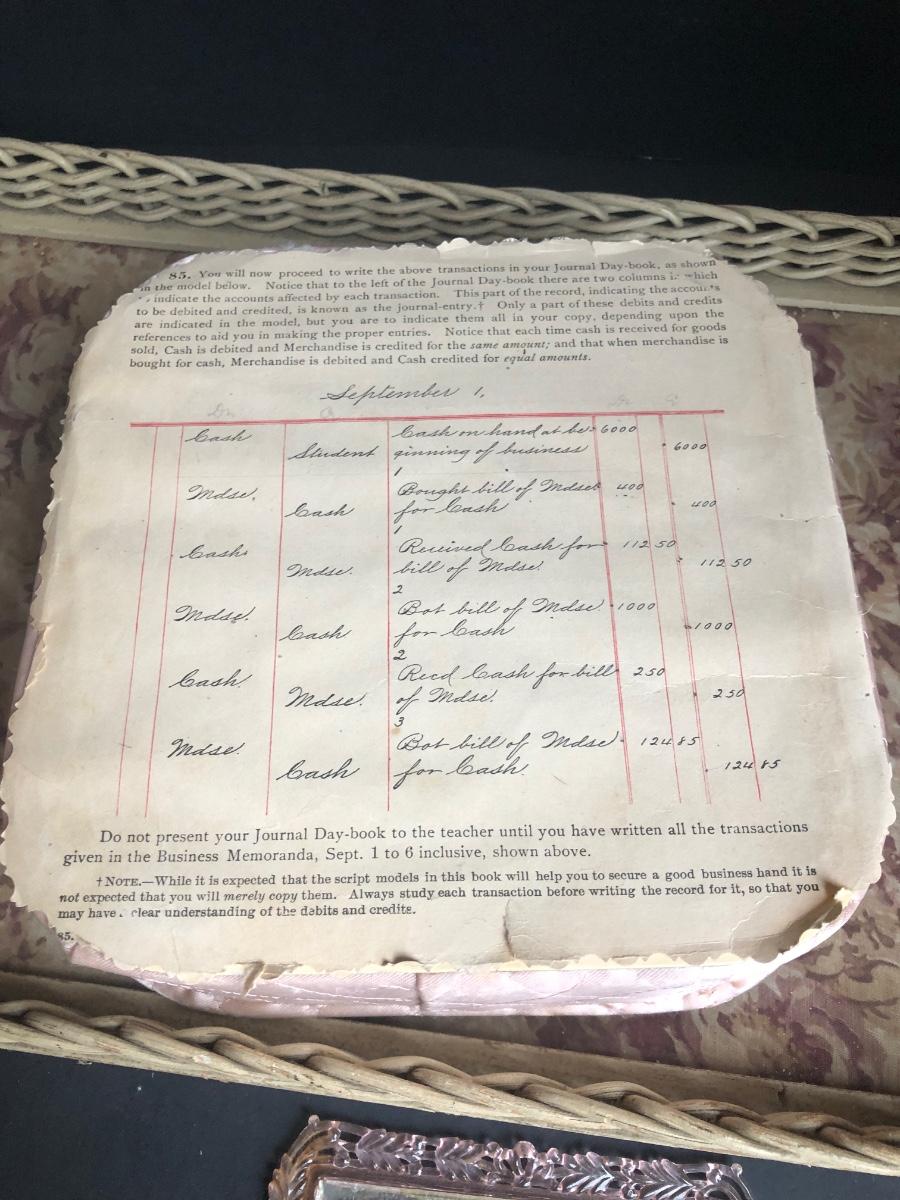 85. You will now proceed to write the above transactions in your Journal Day-book, as shown
in the model below. Notice that to the left of the Journal Day-book there are two columns which
indicate the accounts affected by each transaction. This part of the record, indicating the
to be debited and credited, is known as the journal-entry.† Only a part of these debits and credits
are indicated in the model, but you are to indicate them all in your copy, depending upon the
references to aid you in making the proper entries. Notice that each time cash is received for goods
sold, Cash is debited and Merchandise is credited for the same amount; and that when merchandise is
bought for cash, Merchandise is debited and Cash credited for equal amounts.
September 1,
Cash Cash on hand at be- 6000
Student ginning of business 6000
1
Mdse. Bought bill of Mdse 400
Cash for Cash 400
1
Cash Received Cash for 112 50
Mdse. bill of Mdse. 112 50
2
Mdse. Bot bill of Mdse 1000
Cash for Cash 1000
2
Cash Recd Cash for bill 250
Mdse. of Mdse. 250
3
Mdse. Bot bill of Mdse 124 85
Cash for Cash. 124 85
Do not present your Journal Day-book to the teacher until you have written all the transactions
given in the Business Memoranda, Sept. 1 to 6 inclusive, shown above.
†NOTE.—While it is expected that the script models in this book will help you to secure a good business hand it is
not expected that you will merely copy them. Always study each transaction before writing the record for it, so that you
may have clear understanding of the debits and credits.
85.